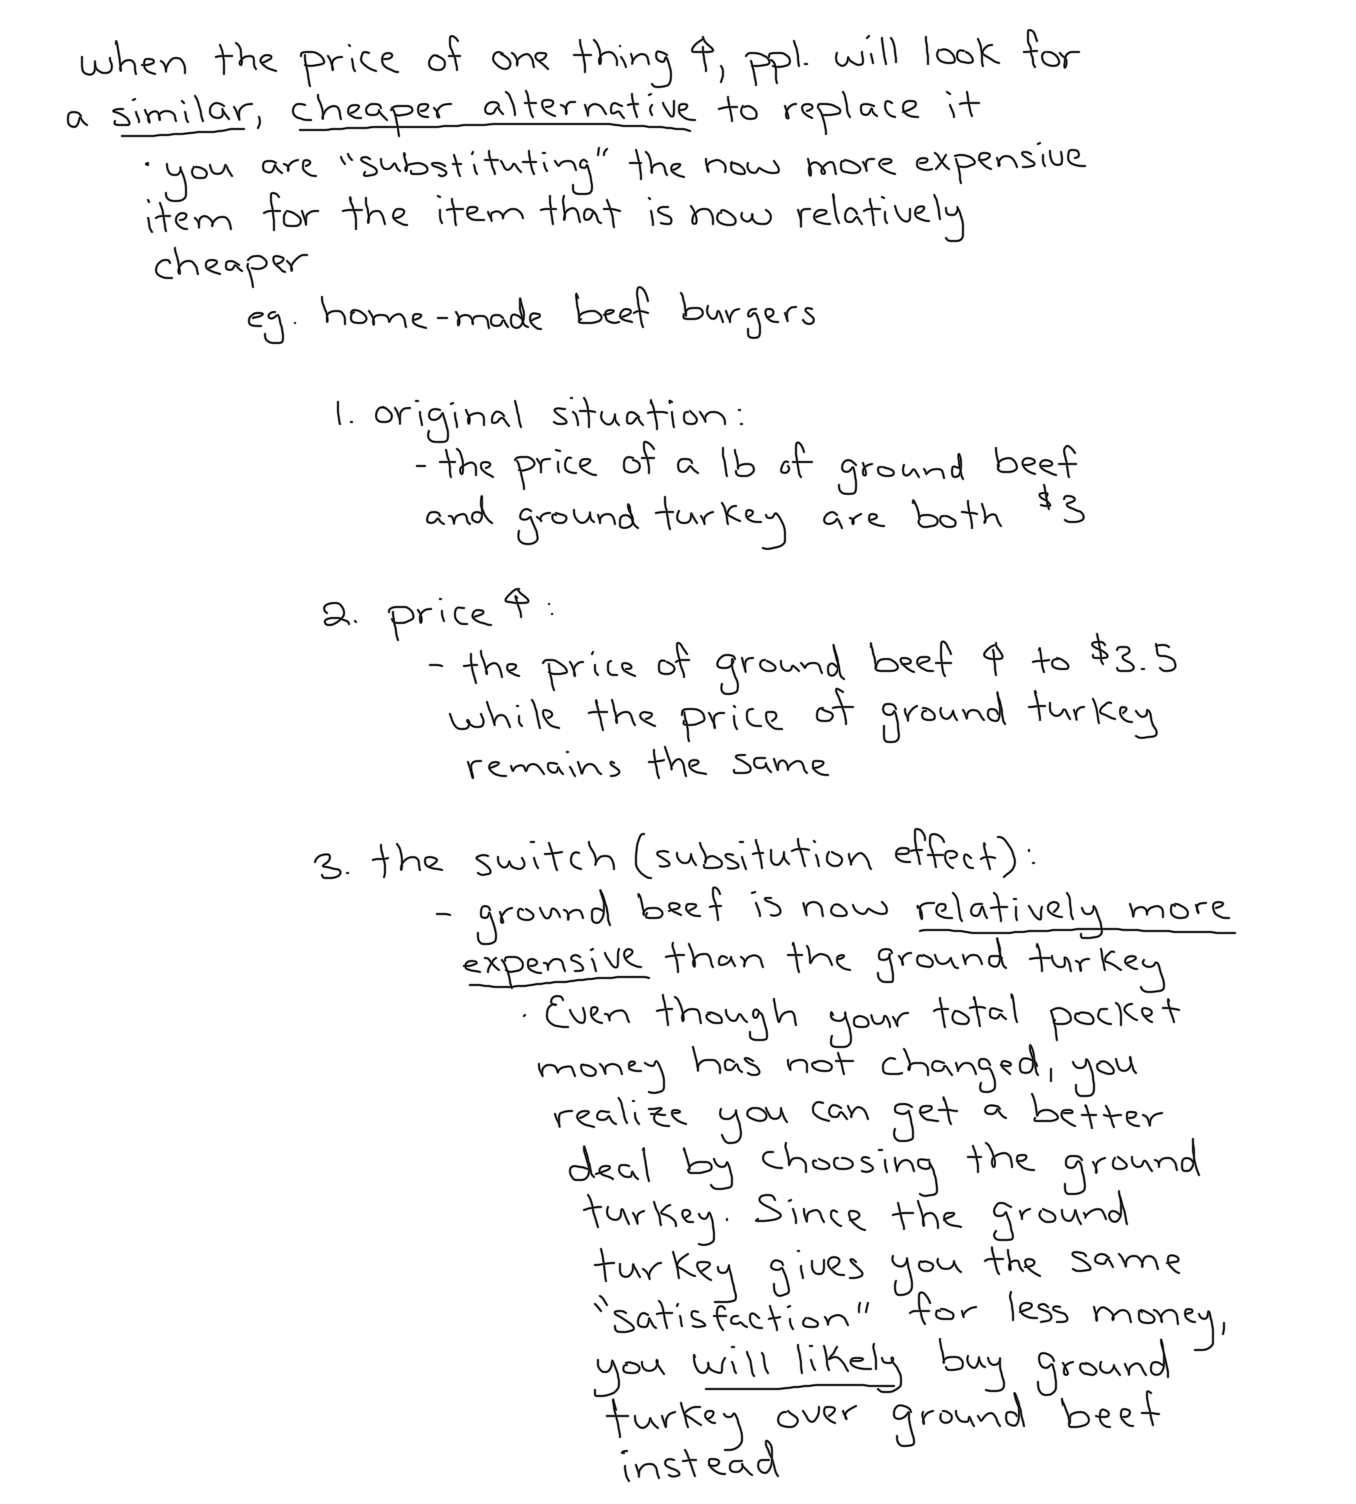 when the price of one thing ↑, ppl. will look for
a similar, cheaper alternative to replace it
· you are "substituting" the now more expensive
item for the item that is now relatively
cheaper
eg. home-made beef burgers
1. original situation:
- the price of a lb of ground beef
and ground turkey are both $3
2. price ↑:
- the price of ground beef ↑ to $3.5
while the price of ground turkey
remains the same
3. the switch (subsitution effect):
- ground beef is now relatively more
expensive than the ground turkey
· Even though your total pocket
money has not changed, you
realize you can get a better
deal by choosing the ground
turkey. Since the ground
turkey gives you the same
"satisfaction" for less money,
you will likely buy ground
turkey over ground beef
instead